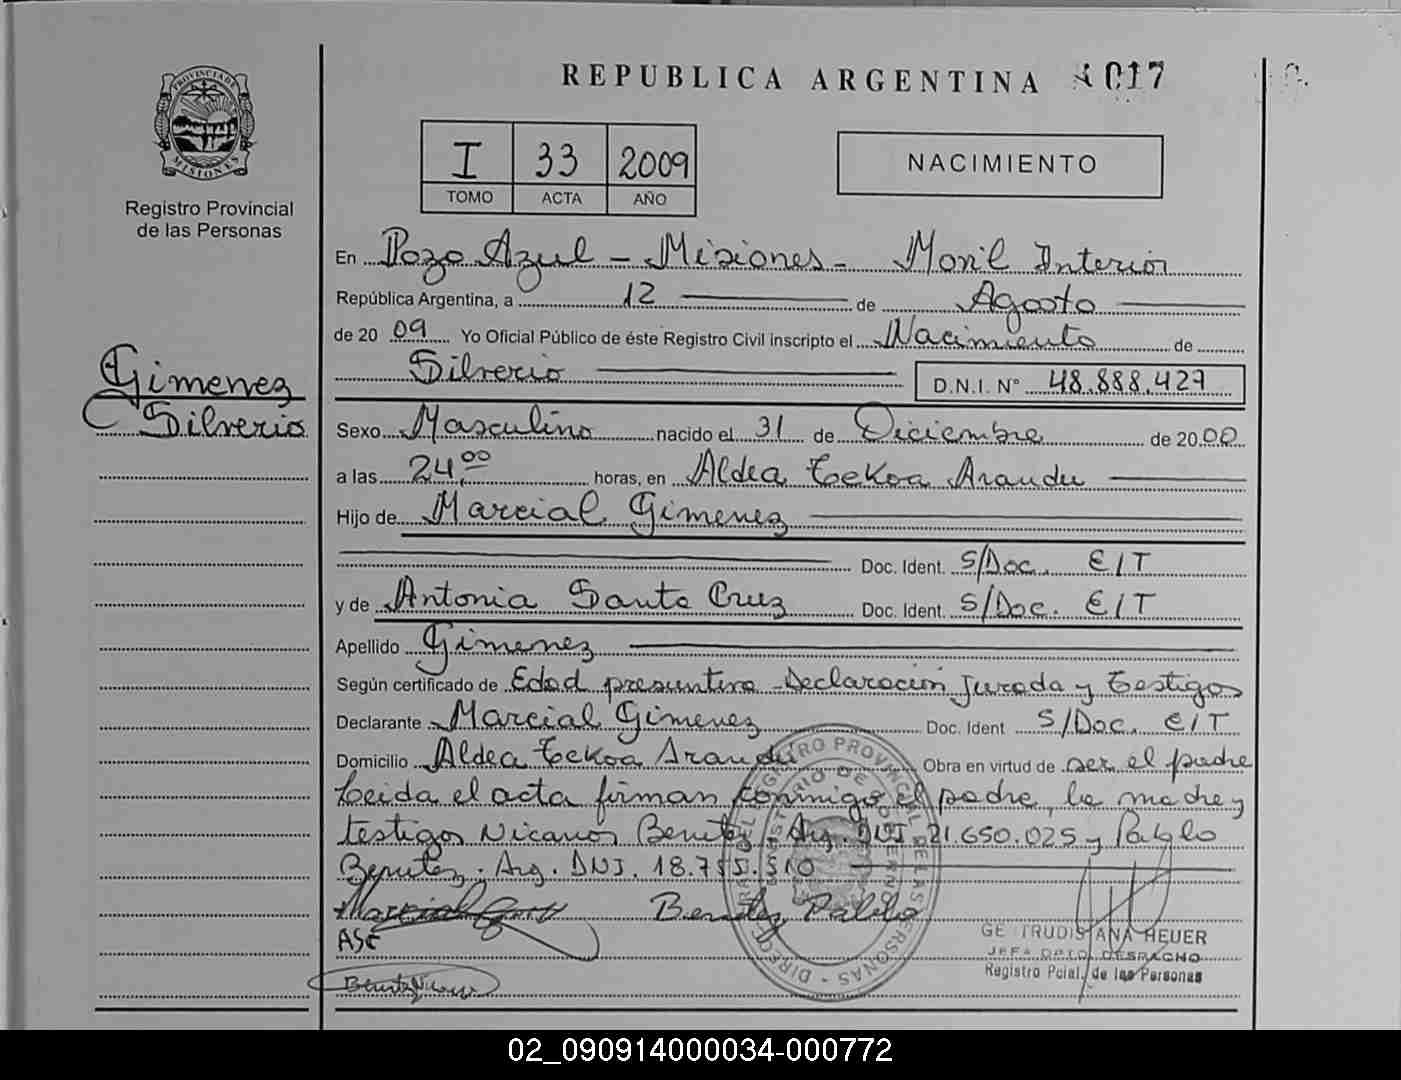 REPUBLICA ARGENTINA 017
PROVINCIA DE
MISIONES
Registro Provincial
de las Personas
I 33 2009
TOMO ACTA AÑO
NACIMIENTO
En Pozo Azul - Misiones - Movil Interior
República Argentina, a 12 de Agosto
de 20 09 Yo Oficial Público de éste Registro Civil inscripto el Nacimiento de
Silverio D.N.I. Nº 48.888.427
Gimenez
Silverio
Sexo Masculino nacido el 31 de Diciembre de 2000
a las 24,00 horas, en Aldea Tekoa Arandu
Hijo de Marcial Gimenez
Doc. Ident. S/Doc. E/T
y de Antonia Santa Cruz Doc. Ident. S/Doc. E/T
Apellido Gimenez
Según certificado de Edad presuntiva - Declaración Jurada y testigos
Declarante Marcial Gimenez Doc. Ident S/Doc. E/T
Domicilio Aldea Tekoa Arandu Obra en virtud de ser el padre
Leida el acta firman conmigo el padre, la madre y
testigos Nicanor Benitez, Arg. DNI 21.650.025 y Pablo
Benitez. Arg. DNI. 18.755.510
Marcial Benitez Pablo
GERTRUDIS ANA HEUER
JEFA DPTO. DESPACHO
Registro Pcial. de las Personas
02_090914000034-000772